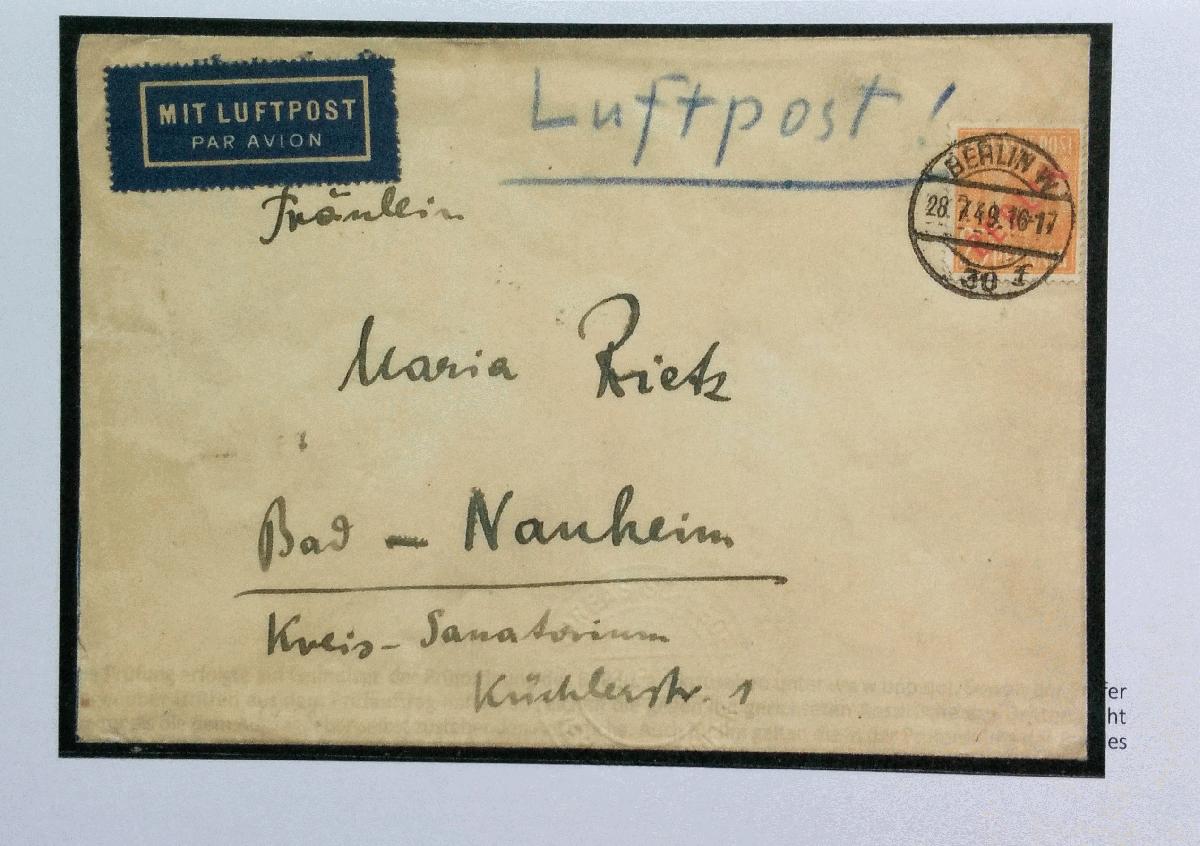 MIT LUFTPOST
PAR AVION
Luftpost!
BERLIN W
28.7.49.16-17
30
Fräulein
Maria Rietz
Bad - Nauheim
Kreis-Sanatorium
Küchlerstr. 1
fer
ht
es